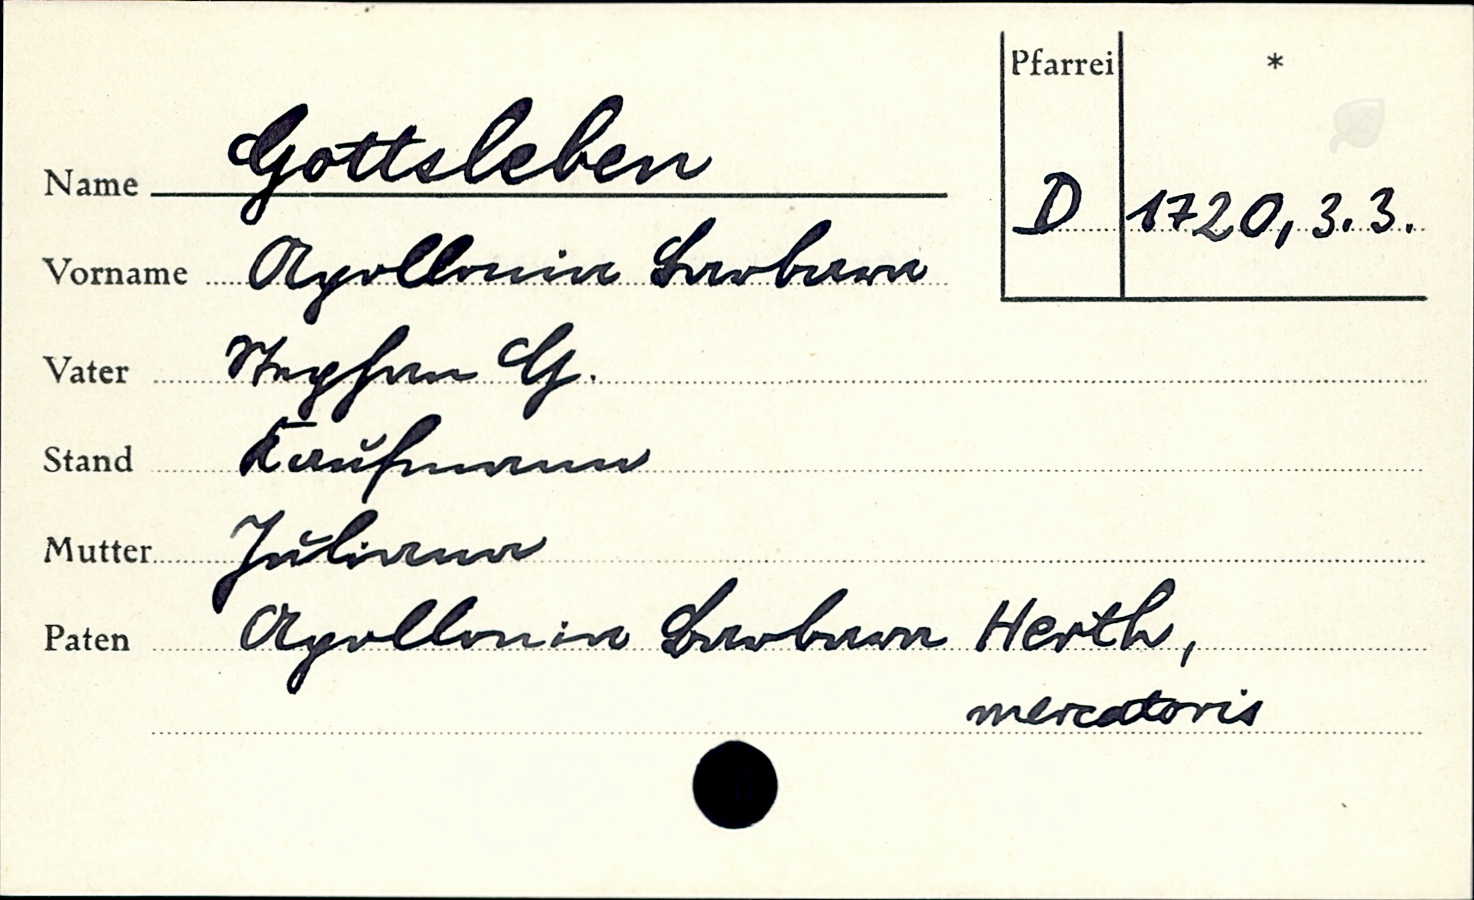 Pfarrei *
Name Gottsleben
D 1720, 3. 3.
Vorname Apollonia Barbara
Vater Stephan G.
Stand Kaufmann
Mutter Juliana
Paten Apollonia Barbara Herth,
mercatoris